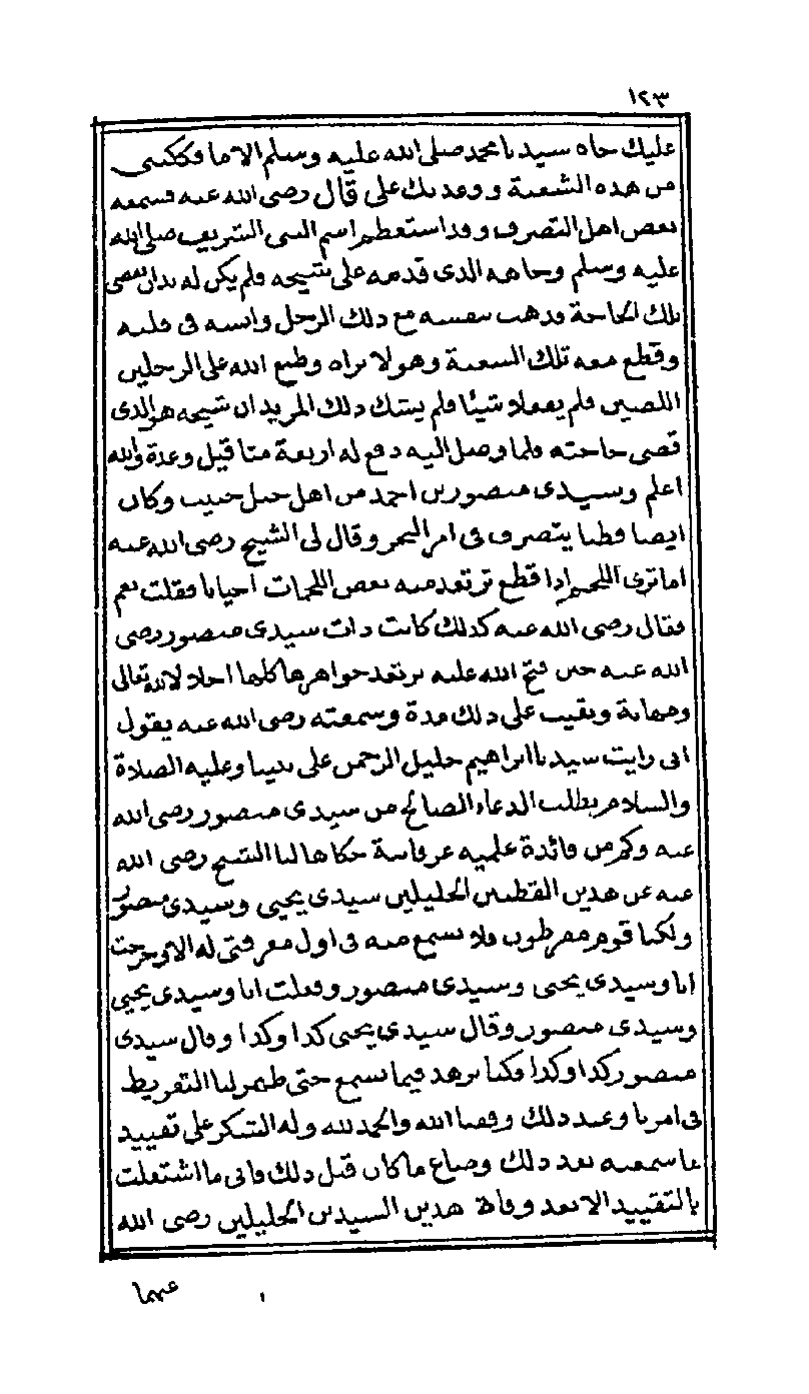 ١٢٣
عليك جاه سيدنا محمد صلى الله عليه وسلم الا ما فككتنى
من هذه الشعبة ووعدتك على قال رضى الله عنه فسمعه
بعض اهل التصرف وقد استعظم اسم النبى الشريف صلى الله
عليه وسلم وجاهه الذى قدمه على شيخه فلم يكن له بد ان يقضى
تلك الحاجة فذهب بنفسه مع ذلك الرجل وانسه فى قلبه
وقطع معه تلك الشعبة وهو لا يراه وطبع الله على الرجلين
اللصين فلم يفعلا شيئا فلم يشك ذلك المريد ان شيخه هو الذى
قضى حاجته فلما وصل اليه دفع له اربعة مثاقيل وعدة والله
اعلم وسيدى منصور بن احمد من اهل جبل حبيب وكان
ايضا قطبا يتصرف فى امر البحر وقال لى الشيخ رضى الله عنه
اما ترى اللحم اذا قطع ترتعد منه بعض اللحمات احيانا فقلت نعم
فقال رضى الله عنه كذلك كانت ذات سيدى منصور رضى
الله عنه حين فتح الله عليه ترتعد جواهرها كلها اجلالا لله تعالى
ومهابة وبقيت على ذلك مدة وسمعته رضى الله عنه يقول
انى رايت سيدنا ابراهيم خليل الرحمن على نبينا وعليه الصلاة
والسلام يطلب الدعاء الصالح من سيدى منصور رضى الله
عنه وكم من فائدة علميه عرفانية حكاها لنا الشيخ رضى الله
عنه عن هذين القطبين الجليلين سيدى يحيى وسيدى منصور
ولكنا قوم مفرطون فلا نسمع منه فى اول معرفتى له الا خرجت
انا وسيدى يحيى وسيدى منصور وفعلت انا وسيدى يحيى
وسيدى منصور وقال سيدى يحيى كذا وكذا وقال سيدى
منصور كذا وكذا فكنا نزهد فيما نسمع حتى ظهر لنا التفريط
فى امرنا وعند ذلك وفقنا الله والحمد لله وله الشكر على تقييد
ما سمعته بعد ذلك وضاع ما كان قبل ذلك فانى ما اشتغلت
بالتقييد الا بعد وفاة هذين السيدين الجليلين رضى الله
عنهما